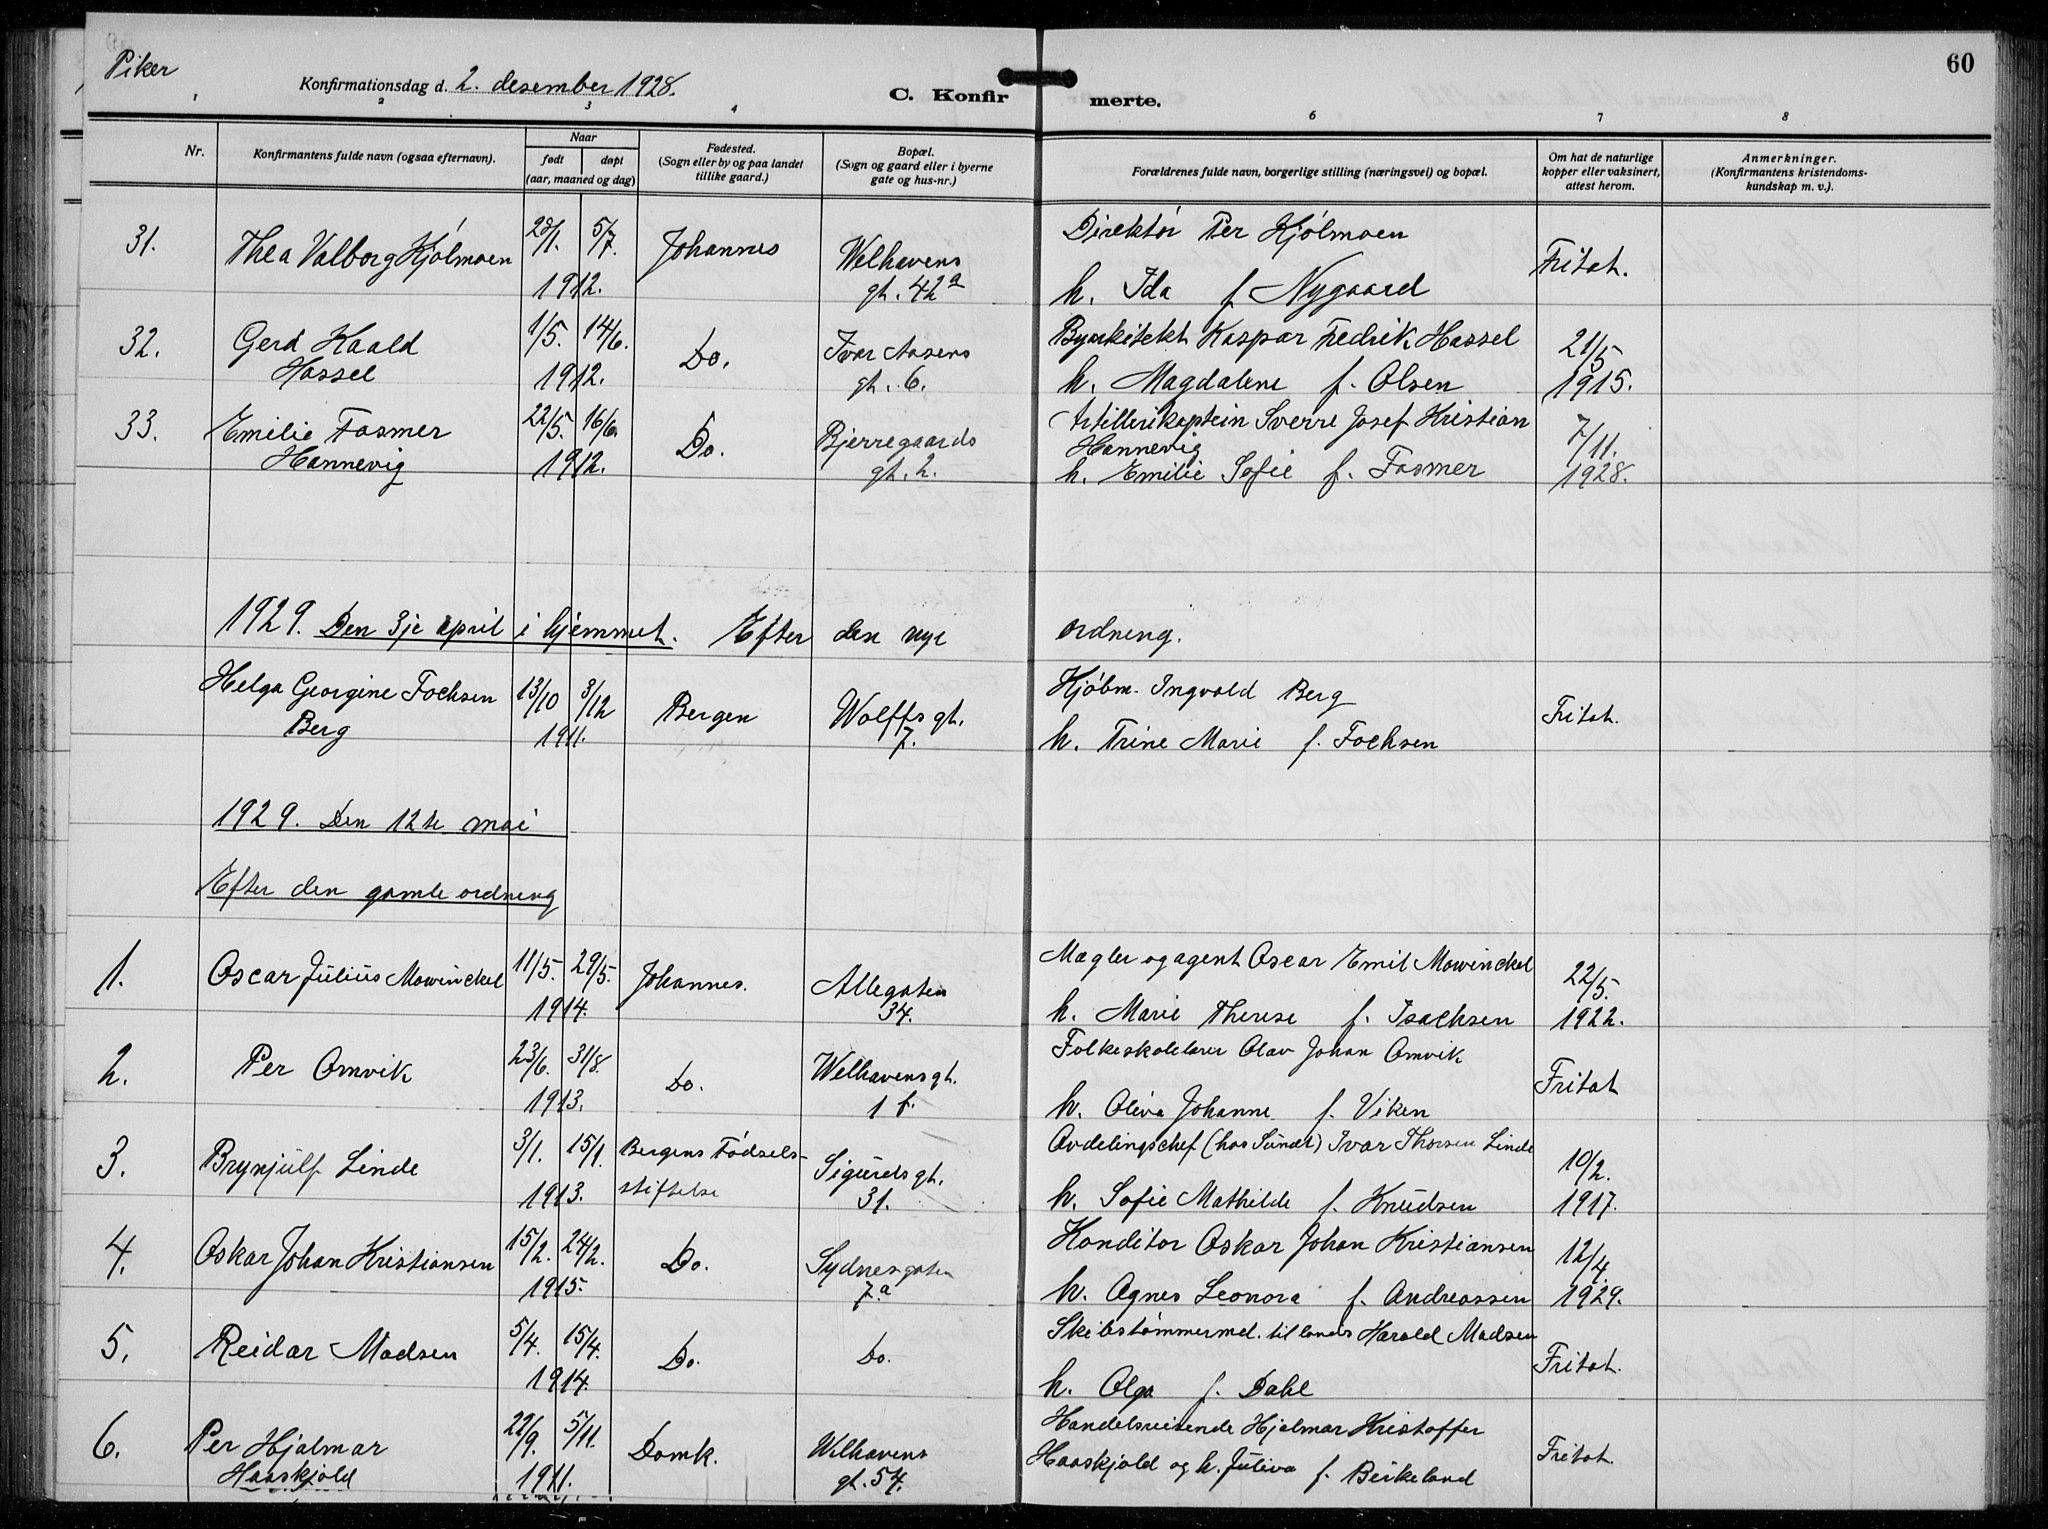 60
Piker
Konfirmationsdag d. 2. desember 1928.
C. Konfirmerte.
1 2 3 4 6 7 8
Nr.
Konfirmantens fulde navn (ogsaa efternavn).
Naar
født døpt
(aar, maaned og dag)
Fødested.
(Sogn eller by og paa landet
tillike gaard.)
Bopæl.
(Sogn og gaard eller i byerne
gate og hus-nr.)
Forældrenes fulde navn, borgerlige stilling (næringsvei) og bopæl.
Om hat de naturlige
kopper eller vaksinert,
attest herom.
Anmerkninger.
(Konfirmantens kristendoms-
kundskap m. v.).
31. Thea Valborg Kjølmoen 28/1. 5/7. Johannes Welhavens Direktør Per Kjølmoen Fritat.
1912. gt. 42a h. Ida f Nygaard
32. Gerd Kaald 1/5. 14/6. Do. Ivar Aasens Byarkitekt Kaspar Fredrik Hassel 21/5
Hassel 1912. gt. 6. h. Magdalene f. Olsen 1915.
33. Emilie Fasmer 22/5. 16/6. Do. Bjerregaards Artillerikaptein Sverre Josef Kristian 7/11.
Hannevig 1912. gt. 2. Hannevig
h. Emilie Sofie f. Fasmer 1928.
1929. Den 3je april i hjemmet. Efter den nye ordning.
Helga Georgine Fochsen 13/10 3/12 Bergen Wolffs gt. Kjøbm. Ingvald Berg Fritat.
Berg 1911. 7. h. Trine Marie f. Fochsen
1929. Den 12te mai
Efter den gamle ordning
1. Oscar Julius Mowinckel 11/5. 29/5. Johannes. Allegaten Mægler og agent Oscar Emil Mowinckel 22/5.
1914. 34. h. Marie Therese f. Isachsen 1922.
2. Per Omvik 23/6. 31/8. Do. Welhavensgt. Folkeskolelærer Olav Johan Omvik Fritat
1913. 1 f. h. Oliva Johanne f. Viken
3. Brynjulf Linde 3/1. 15/1. Bergens Fødsels- Sigurdsgt. Avdelingschef (hos Sundt) Ivar Thorsen Linde 10/2.
1913. stiftelse 31. h. Sofie Mathilde f. Knudsen 1917.
4. Oskar Johan Kristiansen 15/2. 24/2. Do. Sydnesgaten Konditor Oskar Johan Kristiansen 12/4.
1915. 7.a h. Agnes Leonora f. Andreassen 1929.
5. Reidar Madsen 5/4. 15/4. Do. Do. Skibstømmermd. til lands Harald Madsen Fritat.
1914. h. Olga f. Dahl
6. Per Hjalmar 22/9. 5/11. Domk. Welhavens Handelsreisende Hjalmar Kristoffer Fritat.
Haaskjold 1911. gt. 54. Haaskjold og h. Juliva f. Beikeland